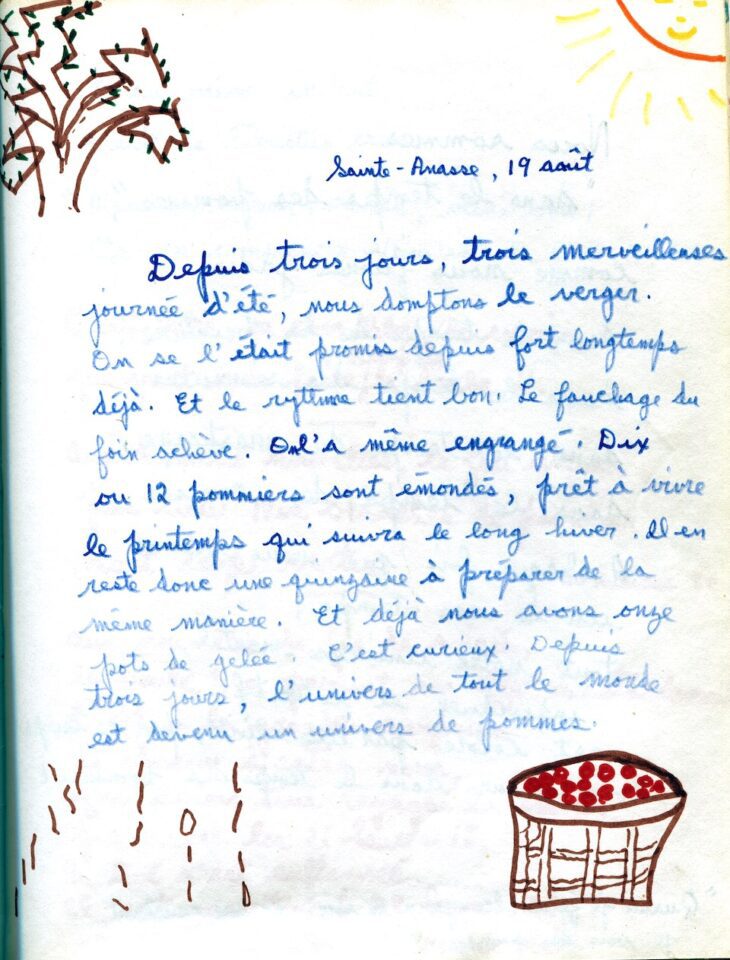 Sainte-Anasse, 19 août
Depuis trois jours, trois merveilleuses
journée d'été, nous domptons le verger.
On se l'était promis depuis fort longtemps
déjà. Et le rythme tient bon. Le fauchage du
foin achève. On l'a même engrangé. Dix
ou 12 pommiers sont émondés, prêt à vivre
le printemps qui suivra le long hiver. Il en
reste donc une quinzaine à préparer de la
même manière. Et déjà nous avons onze
pots de gelée. C'est curieux. Depuis
trois jours, l'univers de tout le monde
est devenu un univers de pommes.